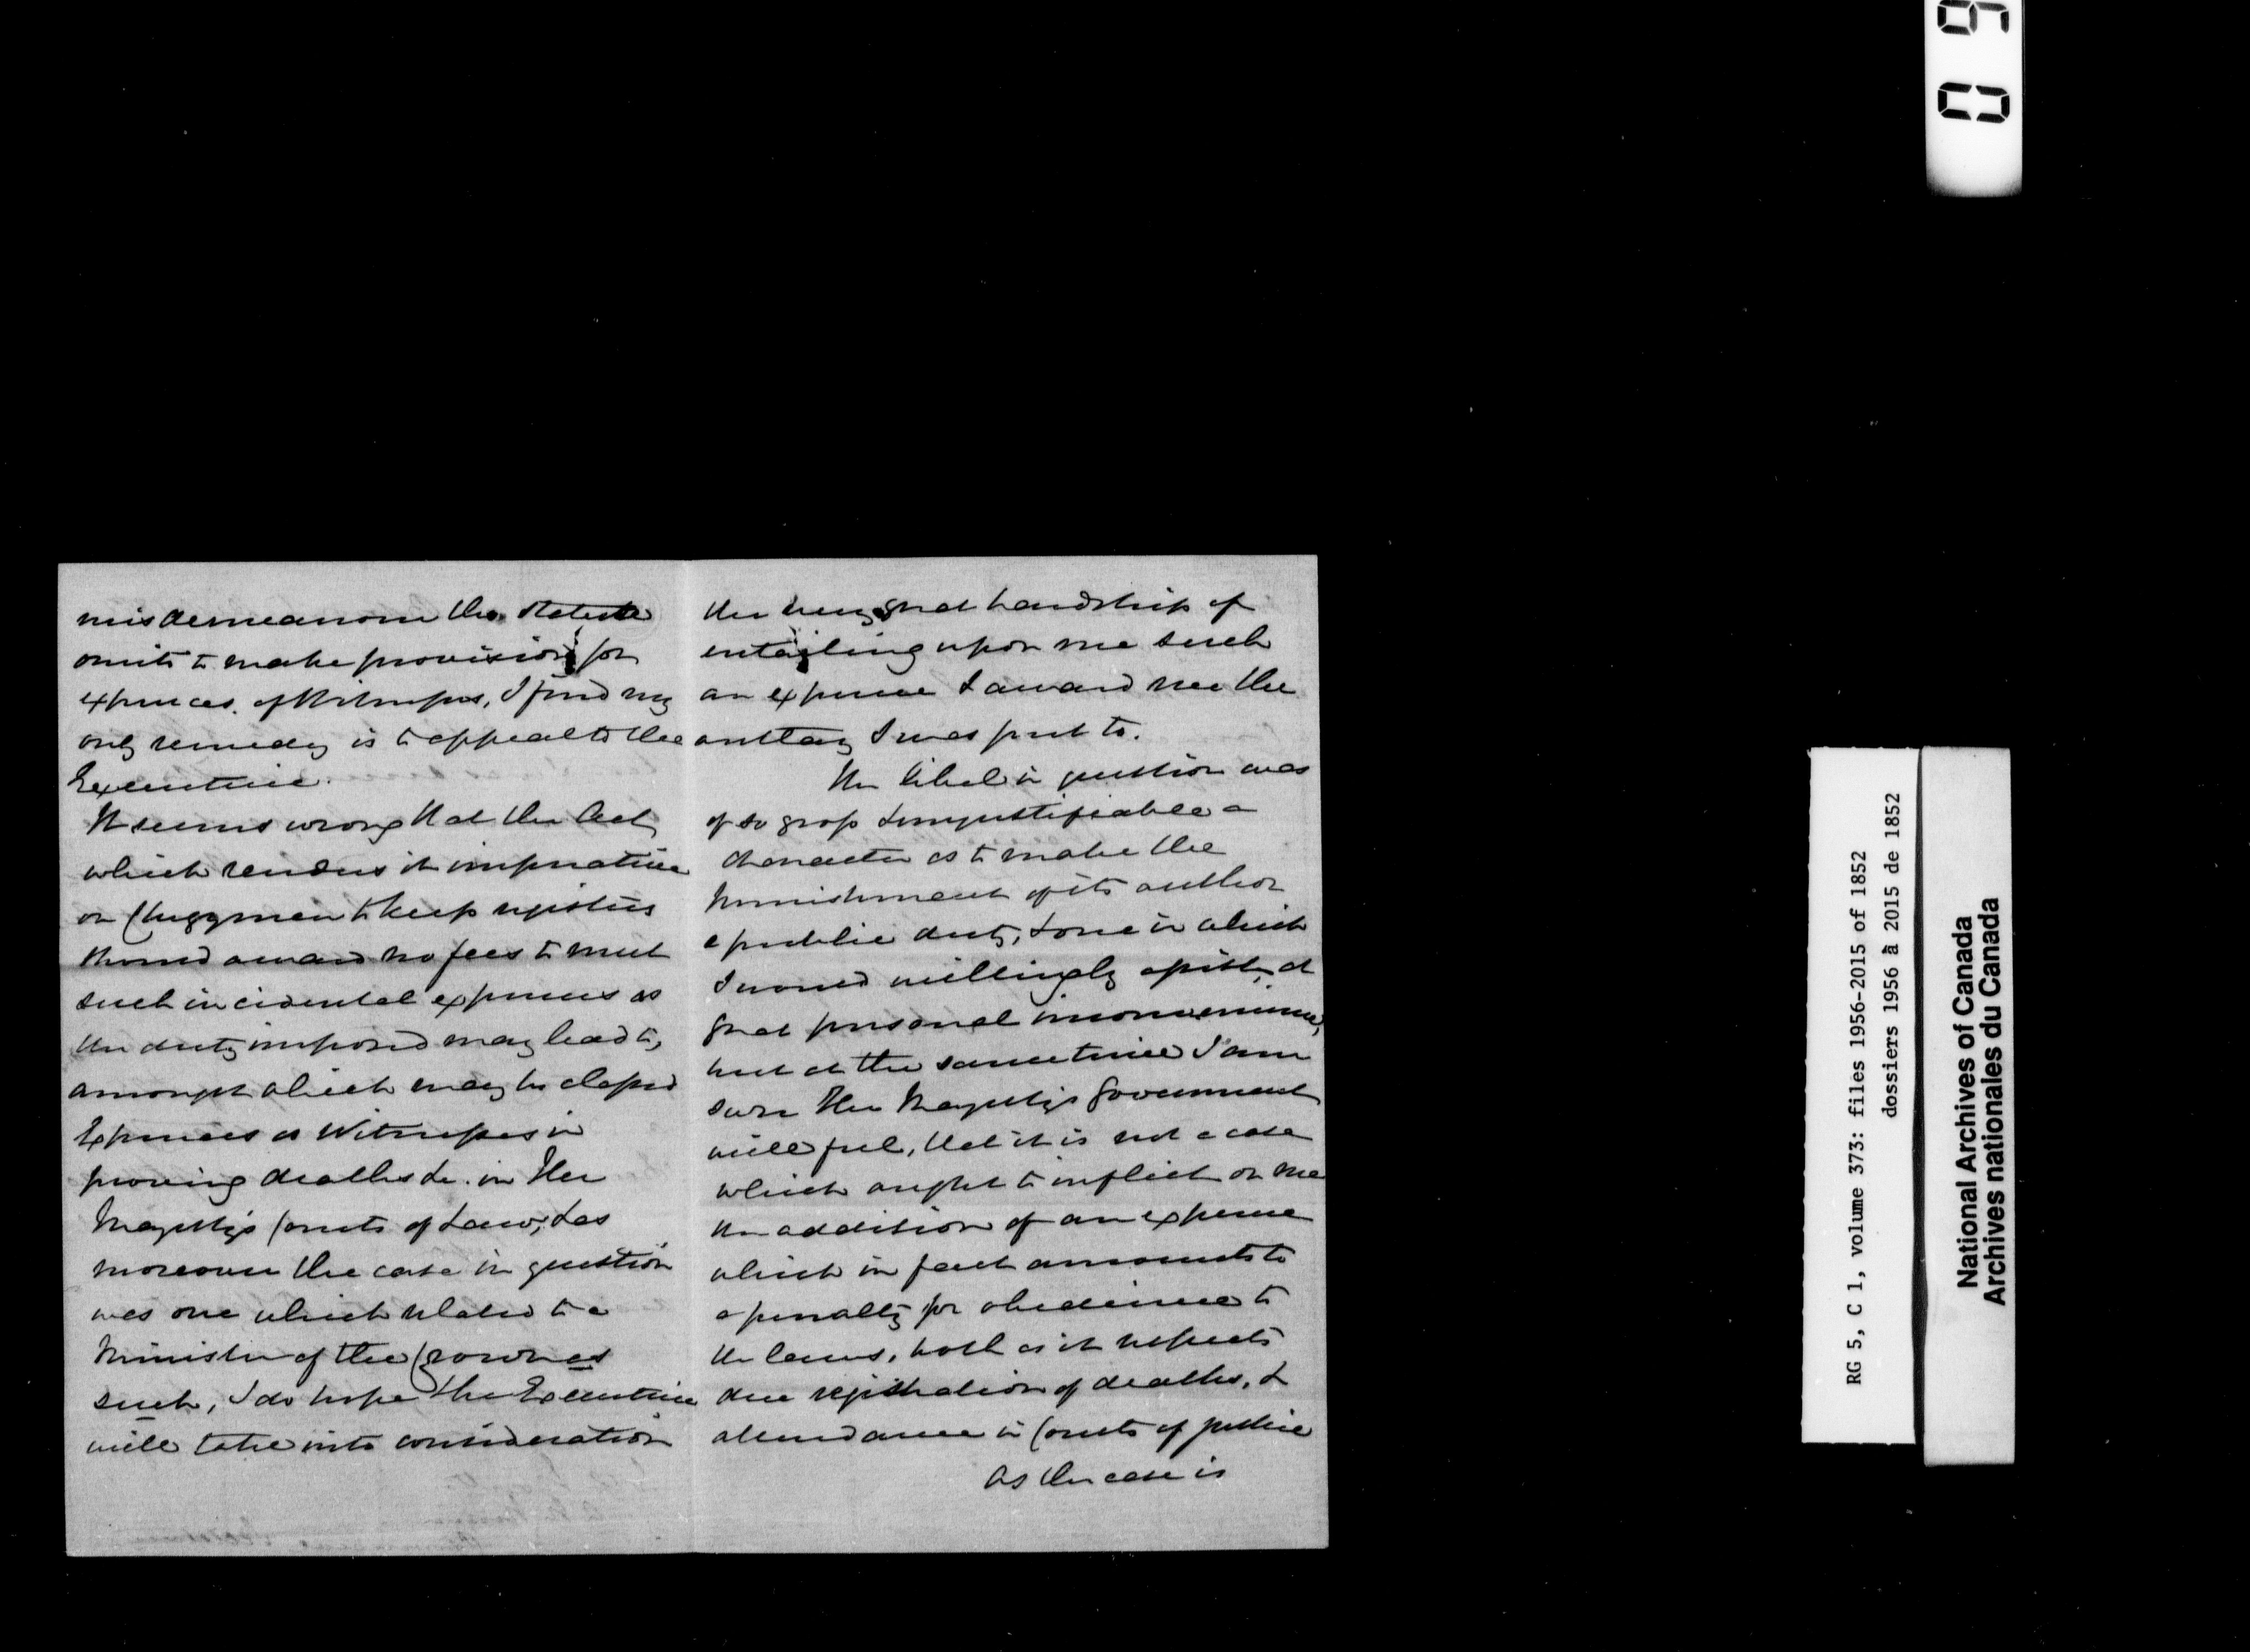 misdemeanour the Statute
omits to make provision for
expences of Witnesses, I find my
only remedy is to appeal to the
Executive.
It seems wrong that the Act
which renders it imperative
on Clergymen to keep registers
should award no fees to meet
such incidental expenses as
the duty imposed may lead to,
amongst which may be classed
Expenses as Witnesses in
proving deaths &c. in Her
Majesty's Courts of Law; & as
moreover the case in question
was one which related to a
Minister of the Crown as
such, I do hope the Executive
will take into consideration
the very great hardship of
entailing upon me such
an expense & award me the
outlay I was put to.
The libel in question was
of so gross & unjustifiable a
character as to make the
punishment of its author
a public duty, & one in which
I would willingly assist, at
great personal inconvenience,
but at the same time I am
sure Her Majesty's Government
will feel, that it is not a case
which ought to inflict on me
the addition of an expense
which in fact amounts to
a penalty for obedience to
the laws, both as it respects
due registration of deaths, &
attendance in Courts of justice
As the case is
09
RG 5, C 1, volume 373: files 1956-2015 of 1852
dossiers 1956 à 2015 de 1852
National Archives of Canada
Archives nationales du Canada